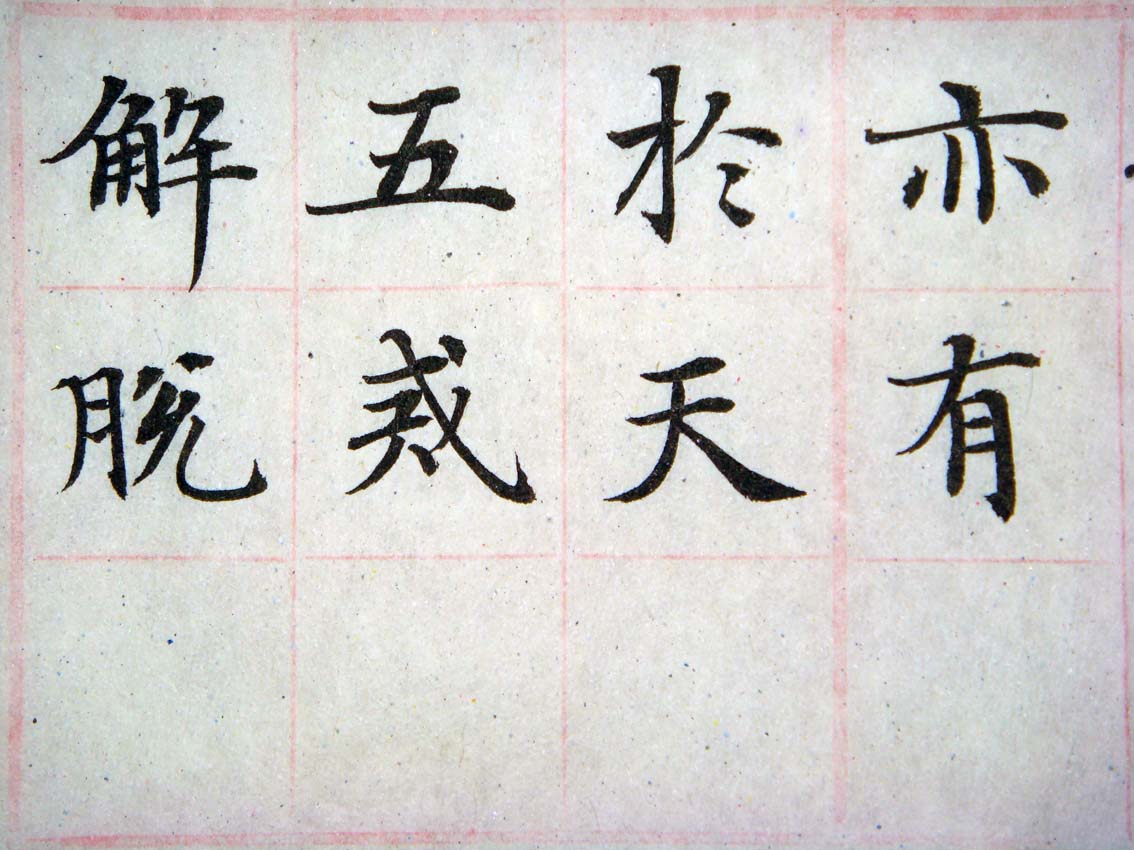 亦有
於天
五
解脫